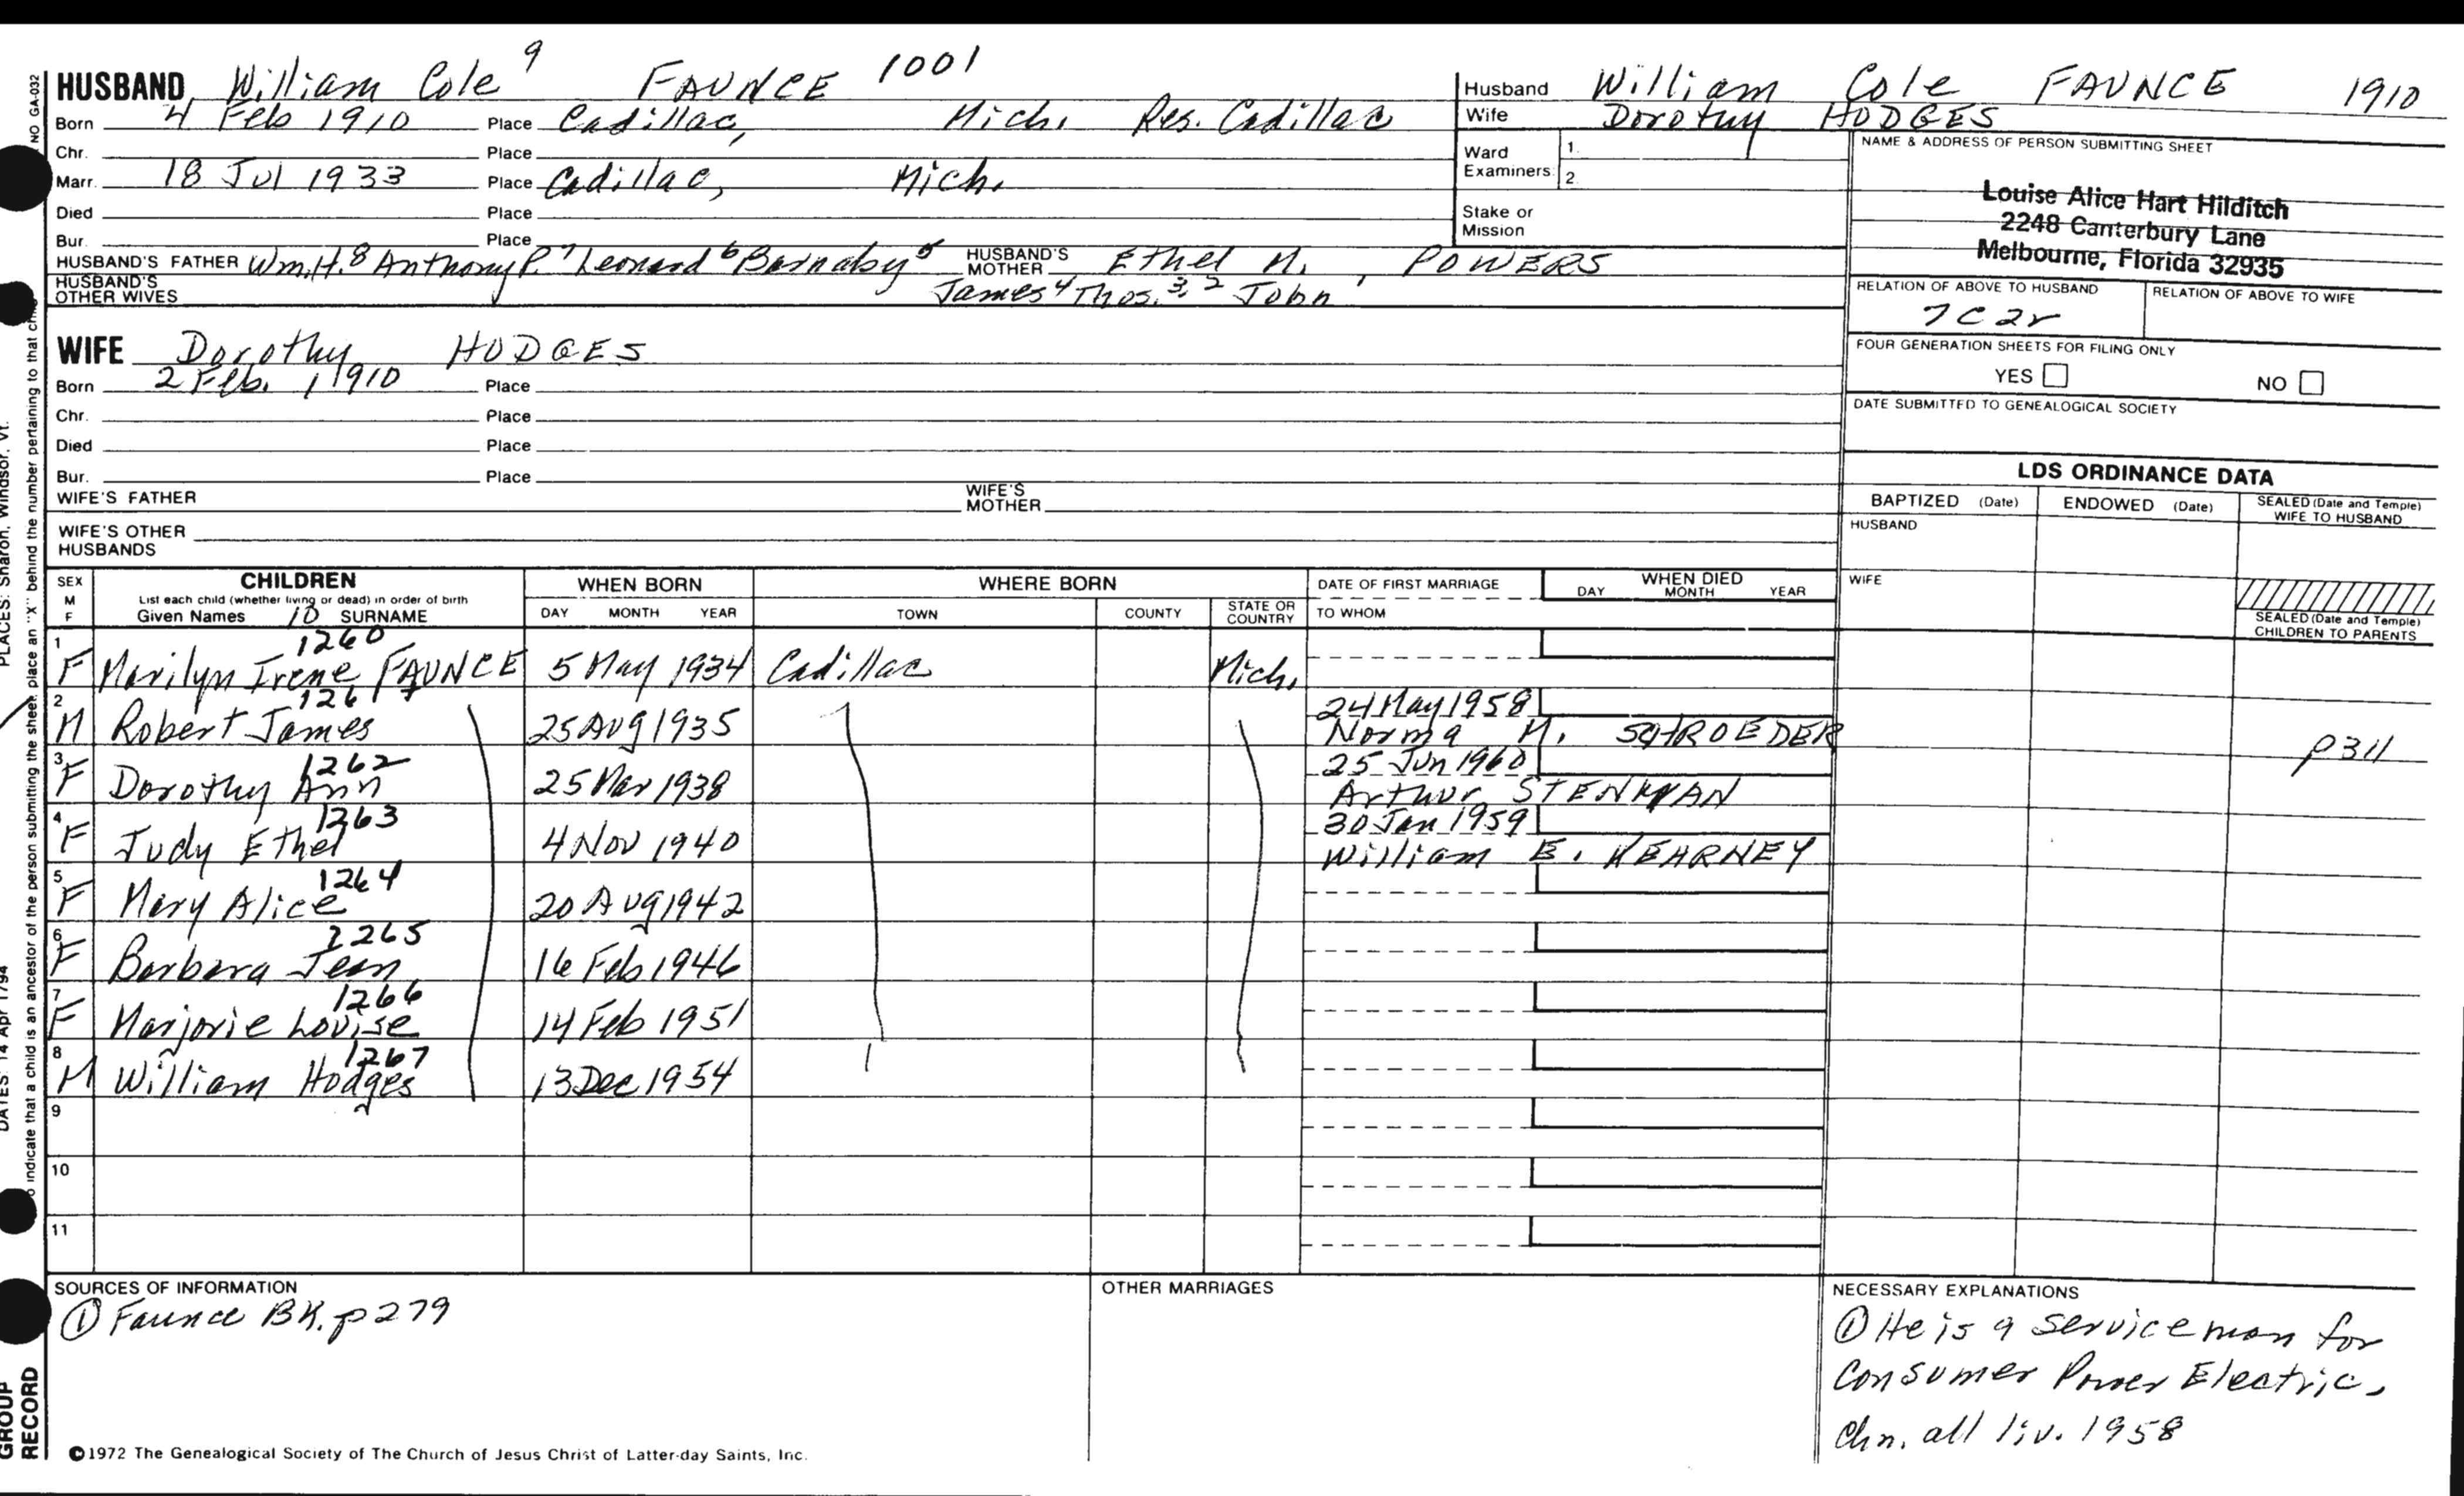 HUSBAND William Cole 9 FAUNCE 1001
Born 4 Feb 1910 Place Cadillac, Mich. Res. Cadillac
Chr. Place
Marr. 18 Jul 1933 Place Cadillac, Mich.
Died Place
Bur. Place
HUSBAND'S FATHER Wm. H.8 Anthony P.7 Leonard6 Barnaby5 HUSBAND'S MOTHER Ethel M. POWERS
HUSBAND'S OTHER WIVES James4 Thos.3,2 John1
WIFE Dorothy HODGES
Born 2 Feb. 1910 Place
Chr. Place
Died Place
Bur. Place
WIFE'S FATHER WIFE'S MOTHER
WIFE'S OTHER HUSBANDS
Husband William Cole FAUNCE 1910
Wife Dorothy HODGES
Ward Examiners 1. 2.
Stake or Mission
NAME & ADDRESS OF PERSON SUBMITTING SHEET
Louise Alice Hart Hilditch
2248 Canterbury Lane
Melbourne, Florida 32935
RELATION OF ABOVE TO HUSBAND RELATION OF ABOVE TO WIFE
7C2r
FOUR GENERATION SHEETS FOR FILING ONLY
YES NO
DATE SUBMITTED TO GENEALOGICAL SOCIETY
LDS ORDINANCE DATA
BAPTIZED (Date) ENDOWED (Date) SEALED (Date and Temple) WIFE TO HUSBAND
HUSBAND
WIFE
SEALED (Date and Temple) CHILDREN TO PARENTS
SEX M F CHILDREN WHEN BORN WHERE BORN DATE OF FIRST MARRIAGE WHEN DIED
List each child (whether living or dead) in order of birth DAY MONTH YEAR
Given Names 10 SURNAME DAY MONTH YEAR TOWN COUNTY STATE OR COUNTRY TO WHOM
1 F 1260 Marilyn Irene FAUNCE 5 May 1934 Cadillac Mich.
2 M 1261 Robert James 25 Aug 1935 24 May 1958 Norma M. SCHROEDER p311
3 F 1262 Dorothy Ann 25 Mar 1938 25 Jun 1960 Arthur STENMAN
4 F 1263 Judy Ethel 4 Nov 1940 30 Jan 1959 William E. KEARNEY
5 F 1264 Mary Alice 20 Aug 1942
6 F 1265 Barbara Jean 16 Feb 1946
7 F 1266 Marjorie Louise 14 Feb 1951
8 M 1267 William Hodges 13 Dec 1954
9
10
11
SOURCES OF INFORMATION
① Faunce BK. p279
OTHER MARRIAGES
NECESSARY EXPLANATIONS
① He is a service man for
Consumer Power Electric.
Chn. all liv. 1958
©1972 The Genealogical Society of The Church of Jesus Christ of Latter-day Saints, Inc.
NO GA-032
PLACES: Sharon, Windsor, Vt.
DATES: 14 Apr 1794
indicate that a child is an ancestor of the person submitting the sheet, place an "X" behind the number pertaining to that
GROUP RECORD